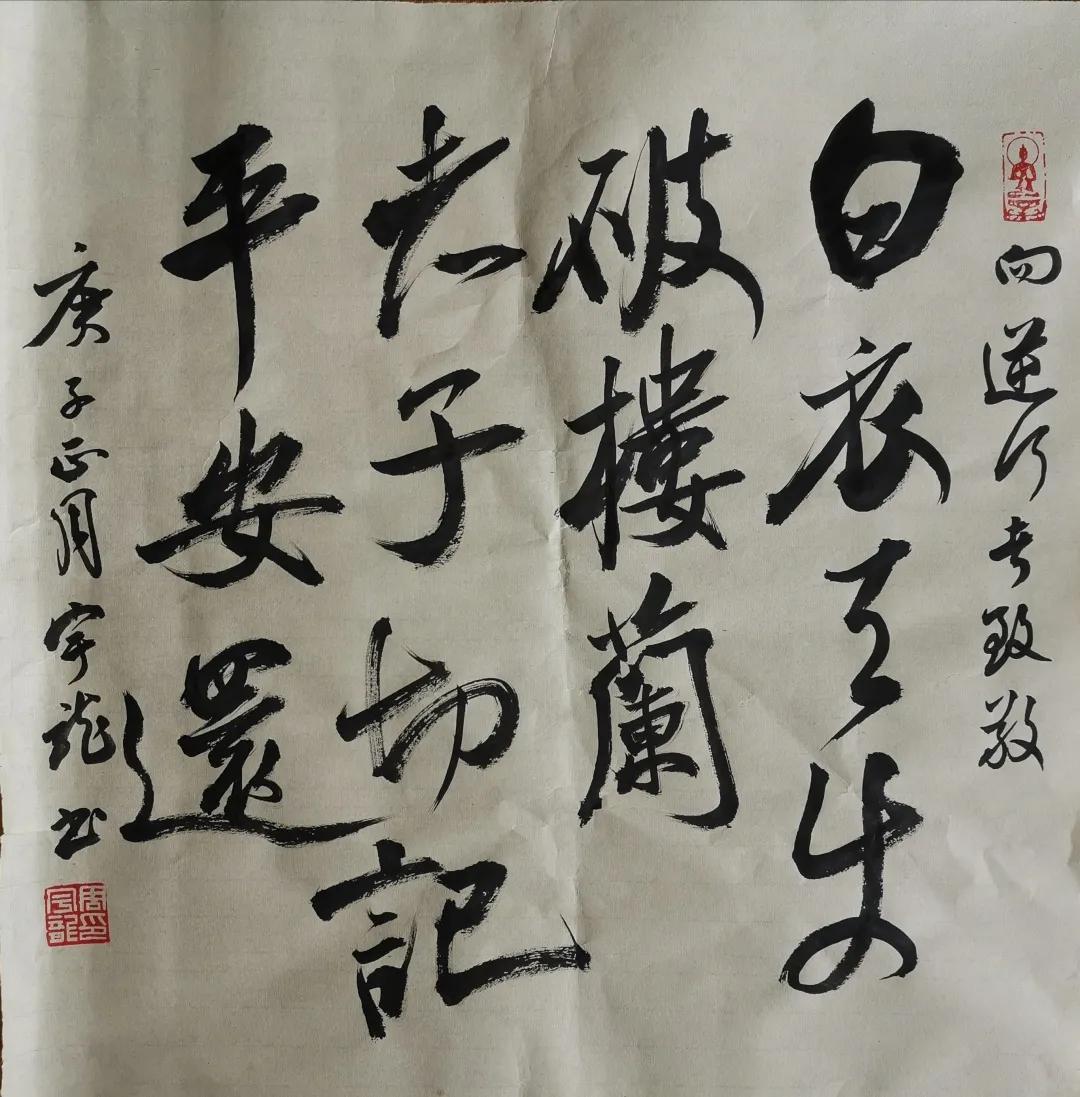 向逆行者致敬
白衣天使
破樓蘭
老子切記
平安還
庚子正月宇龍书
周印宇龍